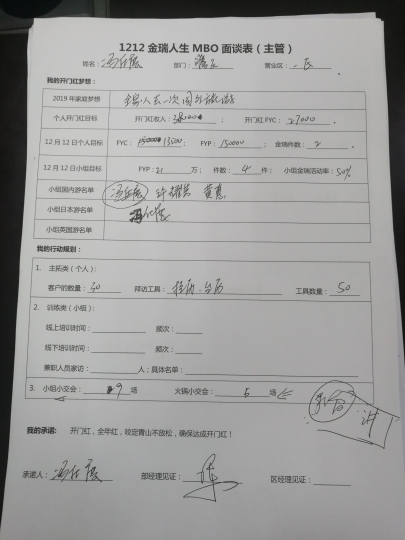 1212 金瑞人生 MBO 面谈表（主管）
姓名： 部门： 营业区：
我的开门红梦想：
2019 年家庭梦想
个人开门红目标 开门红收入： 开门红 FYC： 27000
12 月 12 日个人目标 FYC： 13500 FYP： 150000 金瑞件数： 2
12 月 12 日小组目标 FYP： 21 万； 件数： 4 件； 小组金瑞活动率： 50%
小组国内游名单
小组日本游名单
小组英国游名单
我的行动规划：
1. 主拓类（个人）：
客户的数量： 30 拜访工具： 挂历、台历 工具数量： 50
2. 训练类（小组）：
线上培训时间： 频次：
线下培训时间： 频次：
兼职人员家访： 人；具体名单：
3. 小组小交会： 9 场 火锅小交会： 5 场
讲
我的承诺: 开门红，全年红，咬定青山不放松，确保达成开门红！
承诺人： 部经理见证： 区经理见证：